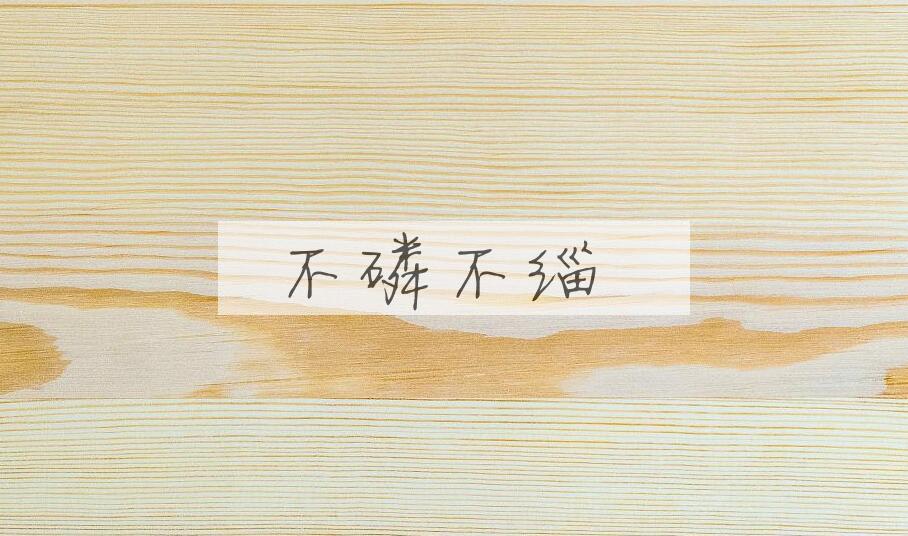 不磷不缁